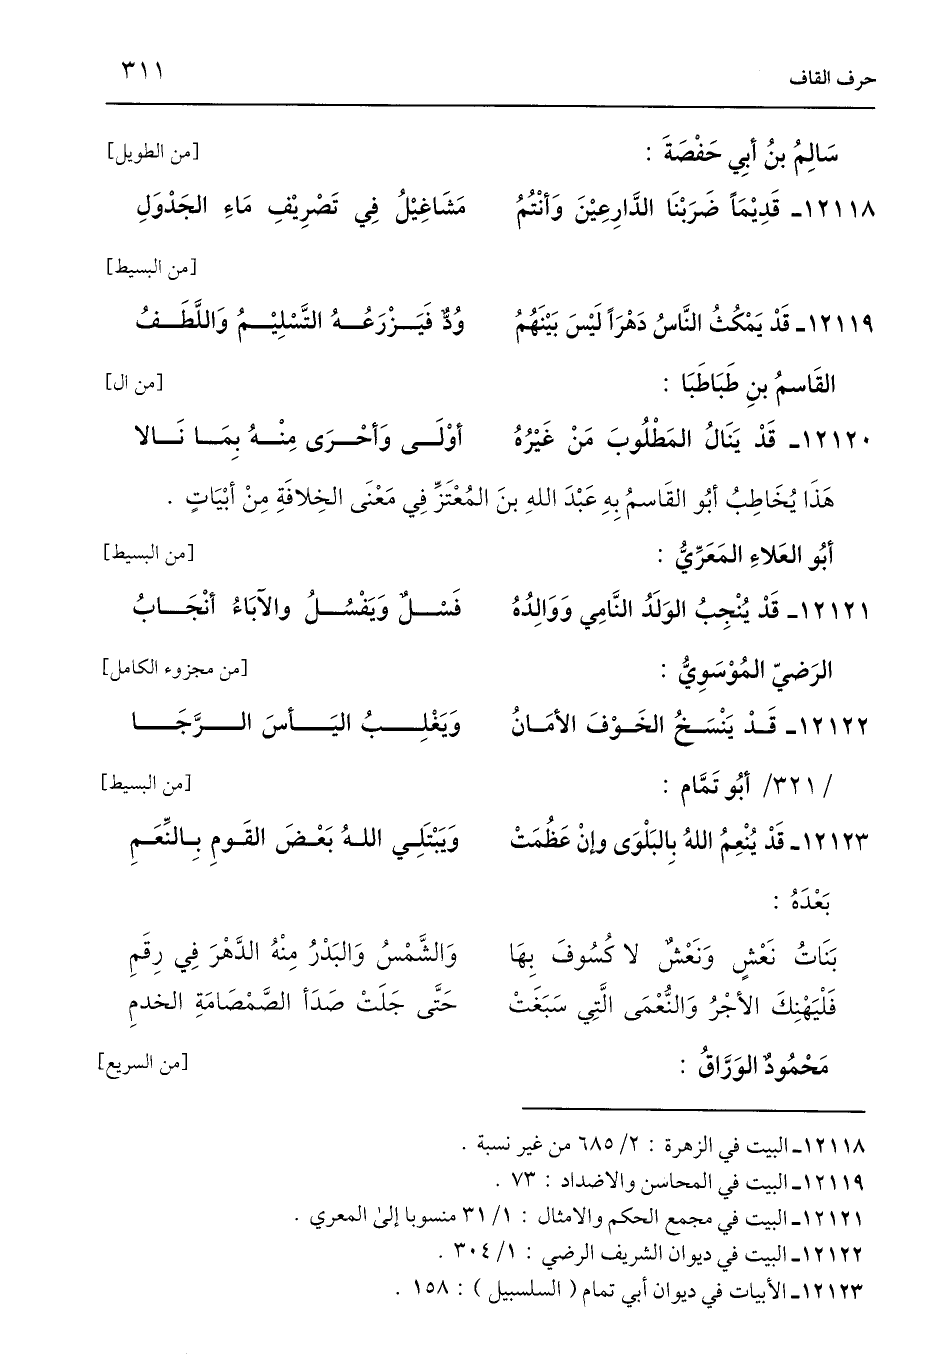 حرف القاف ٣١١
سَالِمُ بنُ أبِي حَفْصَةَ : [من الطويل]
١٢١١٨ـ قَدِيْمَاً ضَرَبْنَا الدَّارِعِيْنَ وَأنْتُمُ مَشَاغِيْلُ فِي تَصْرِيْفِ مَاءِ الجَدْوَلِ
[من البسيط]
١٢١١٩ـ قَدْ يَمْكُثُ النَّاسُ دَهْرَاً لَيْسَ بَيْنَهُمُ وُدٌّ فَيَـزْرَعُـهُ التَّسْلِيْـمُ وَاللَّطَـفُ
القَاسمُ بنِ طَبَاطَبَا : [من ال]
١٢١٢٠ـ قَدْ يَنَالُ المَطْلُوبَ مَنْ غَيْرُهُ أوْلَـى وَأحْـرَى مِنْـهُ بِمَـا نَـالا
هَذَا يُخَاطِبُ أبُو القَاسمُ بِهِ عَبْدَ اللهِ بنَ المُعْتَزِّ فِي مَعْنَى الخِلافَةِ مِنْ أبْيَاتٍ .
أبُو العَلاءِ المَعَرِّيُّ : [من البسيط]
١٢١٢١ـ قَدْ يُنْجِبُ الوَلَدُ النَّامِي وَوَالِدُهُ فَسْـلٌ وَيَفْسُـلُ والآبَاءُ أنْجَـابُ
الرَضيّ المُوْسَوِيُّ : [من مجزوء الكامل]
١٢١٢٢ـ قَـدْ يَنْسَـخُ الخَـوْفَ الأمَـانُ وَيَغْلِـبُ اليَـأسَ الـرَّجَـا
/ ٣٢١/ أبُو تَمَّام : [من البسيط]
١٢١٢٣ـ قَدْ يُنْعِمُ اللهُ بِالبَلْوَى وإنْ عَظُمَتْ وَيَبْتَلِـي اللـهُ بَعْـضَ القَـومِ بِـالنِّعَـمِ
بَعْدَهُ :
بَنَاتُ نَعْشٍ وَنَعْشٌ لا كُسُوفَ بِهَا وَالشَّمْسُ وَالبَدْرُ مِنْهُ الدَّهْرَ فِي رِقَمِ
فَلْيَهْنِكَ الأجْرُ وَالنُّعْمَى الَّتِي سَبَغَتْ حَتَّى جَلَتْ صَدَأ الصَّمْصَامَةِ الخدمِ
مَحْمُودٌ الوَرَّاقُ : [من السريع]
١٢١١٨ـ البيت في الزهرة : ٢/ ٦٨٥ من غير نسبة .
١٢١١٩ـ البيت في المحاسن والاضداد : ٧٣ .
١٢١٢١ـ البيت في مجمع الحكم والامثال : ١/ ٣١ منسوبا إلىٰ المعري .
١٢١٢٢ـ البيت في ديوان الشريف الرضي : ١/ ٣٠٤ .
١٢١٢٣ـ الأبيات في ديوان أبي تمام ( السلسبيل ) : ١٥٨ .